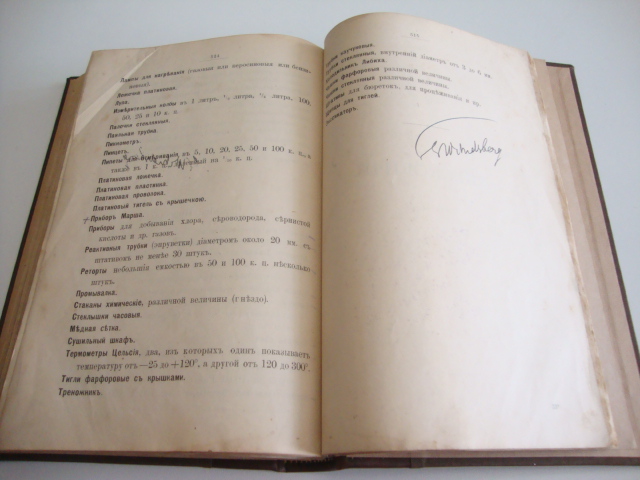 Лампы для нагрѣванія (газовыя или керосиновыя или бензиновыя).
Ложечка платиновая.
Лупа.
Измѣрительныя колбы въ 1 литръ, литра, литра, 100, 50, 25 и 10 к. ц.
Палочки стеклянныя.
Паяльная трубка.
Пикнометръ.
Пинцетъ.
Пипетки для въ 5, 10, 20, 25, 50 и 100 к. ц.,
также въ 1 к. ц. к. ц.
Платиновая ложечка.
Платиновая пластинка.
Платиновая проволока.
Платиновый тигель съ крышечкою.
Приборъ Марша.
Приборы для добыванія хлора, сѣроводорода, сѣрнистой
кислоты и др. газовъ.
Реактивныя трубки (эпруветки) діаметромъ около 20 мм. съ
штативомъ не менѣе 30 штукъ.
Реторты небольшія емкостью въ 50 и 100 к. ц. нѣсколько
штукъ.
Промывалка.
Стаканы химическіе, различной величины (гнѣздо).
Стеклышки часовыя.
Мѣдная сѣтка.
Сушильный шкафъ.
Термометры Цельсія, два, изъ которыхъ одинъ показываетъ
температуру отъ —25 до +120°, а другой отъ 120 до 300°.
Тигли фарфоровые съ крышками.
Треножникъ.
каучуковыя.
стеклянныя, внутренній діаметръ отъ 3 до 6 мм.
Либиха.
фарфоровыя различной величины.
стеклянныя различной величины.
для бюретокъ, для процѣживанія и пр.
для тиглей.